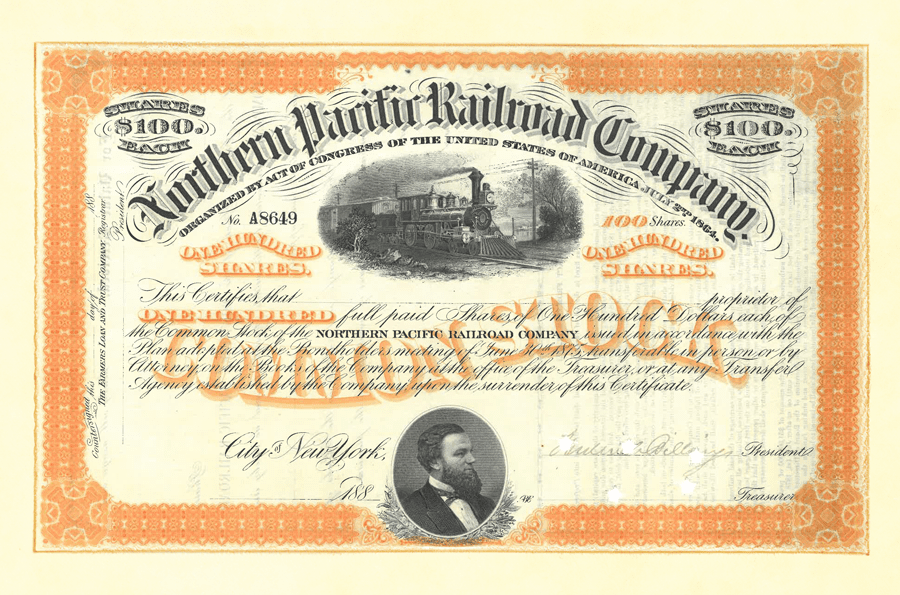 SHARES
$100.
EACH
Northern Pacific Railroad Company.
SHARES
$100.
EACH
ORGANIZED BY ACT OF CONGRESS OF THE UNITED STATES OF AMERICA JULY 2ND 1864.
No. A8649
100 Shares.
ONE HUNDRED
SHARES.
ONE HUNDRED
SHARES.
This Certifies that
proprietor of
ONE HUNDRED full paid Shares of One Hundred Dollars each, of
the Common Stock of the NORTHERN PACIFIC RAILROAD COMPANY issued in accordance with the
Plan adopted at the Bondholders meeting of June 30th 1875, transferable in person or by
Attorney on the books of the Company at the office of the Treasurer, or at any Transfer
Agency established by the Company upon the surrender of this Certificate.
COMMON STOCK
City of New York,
188
Frederick Billings President
Treasurer
Countersigned this day of 188
THE FARMERS LOAN AND TRUST COMPANY, Registrar
President